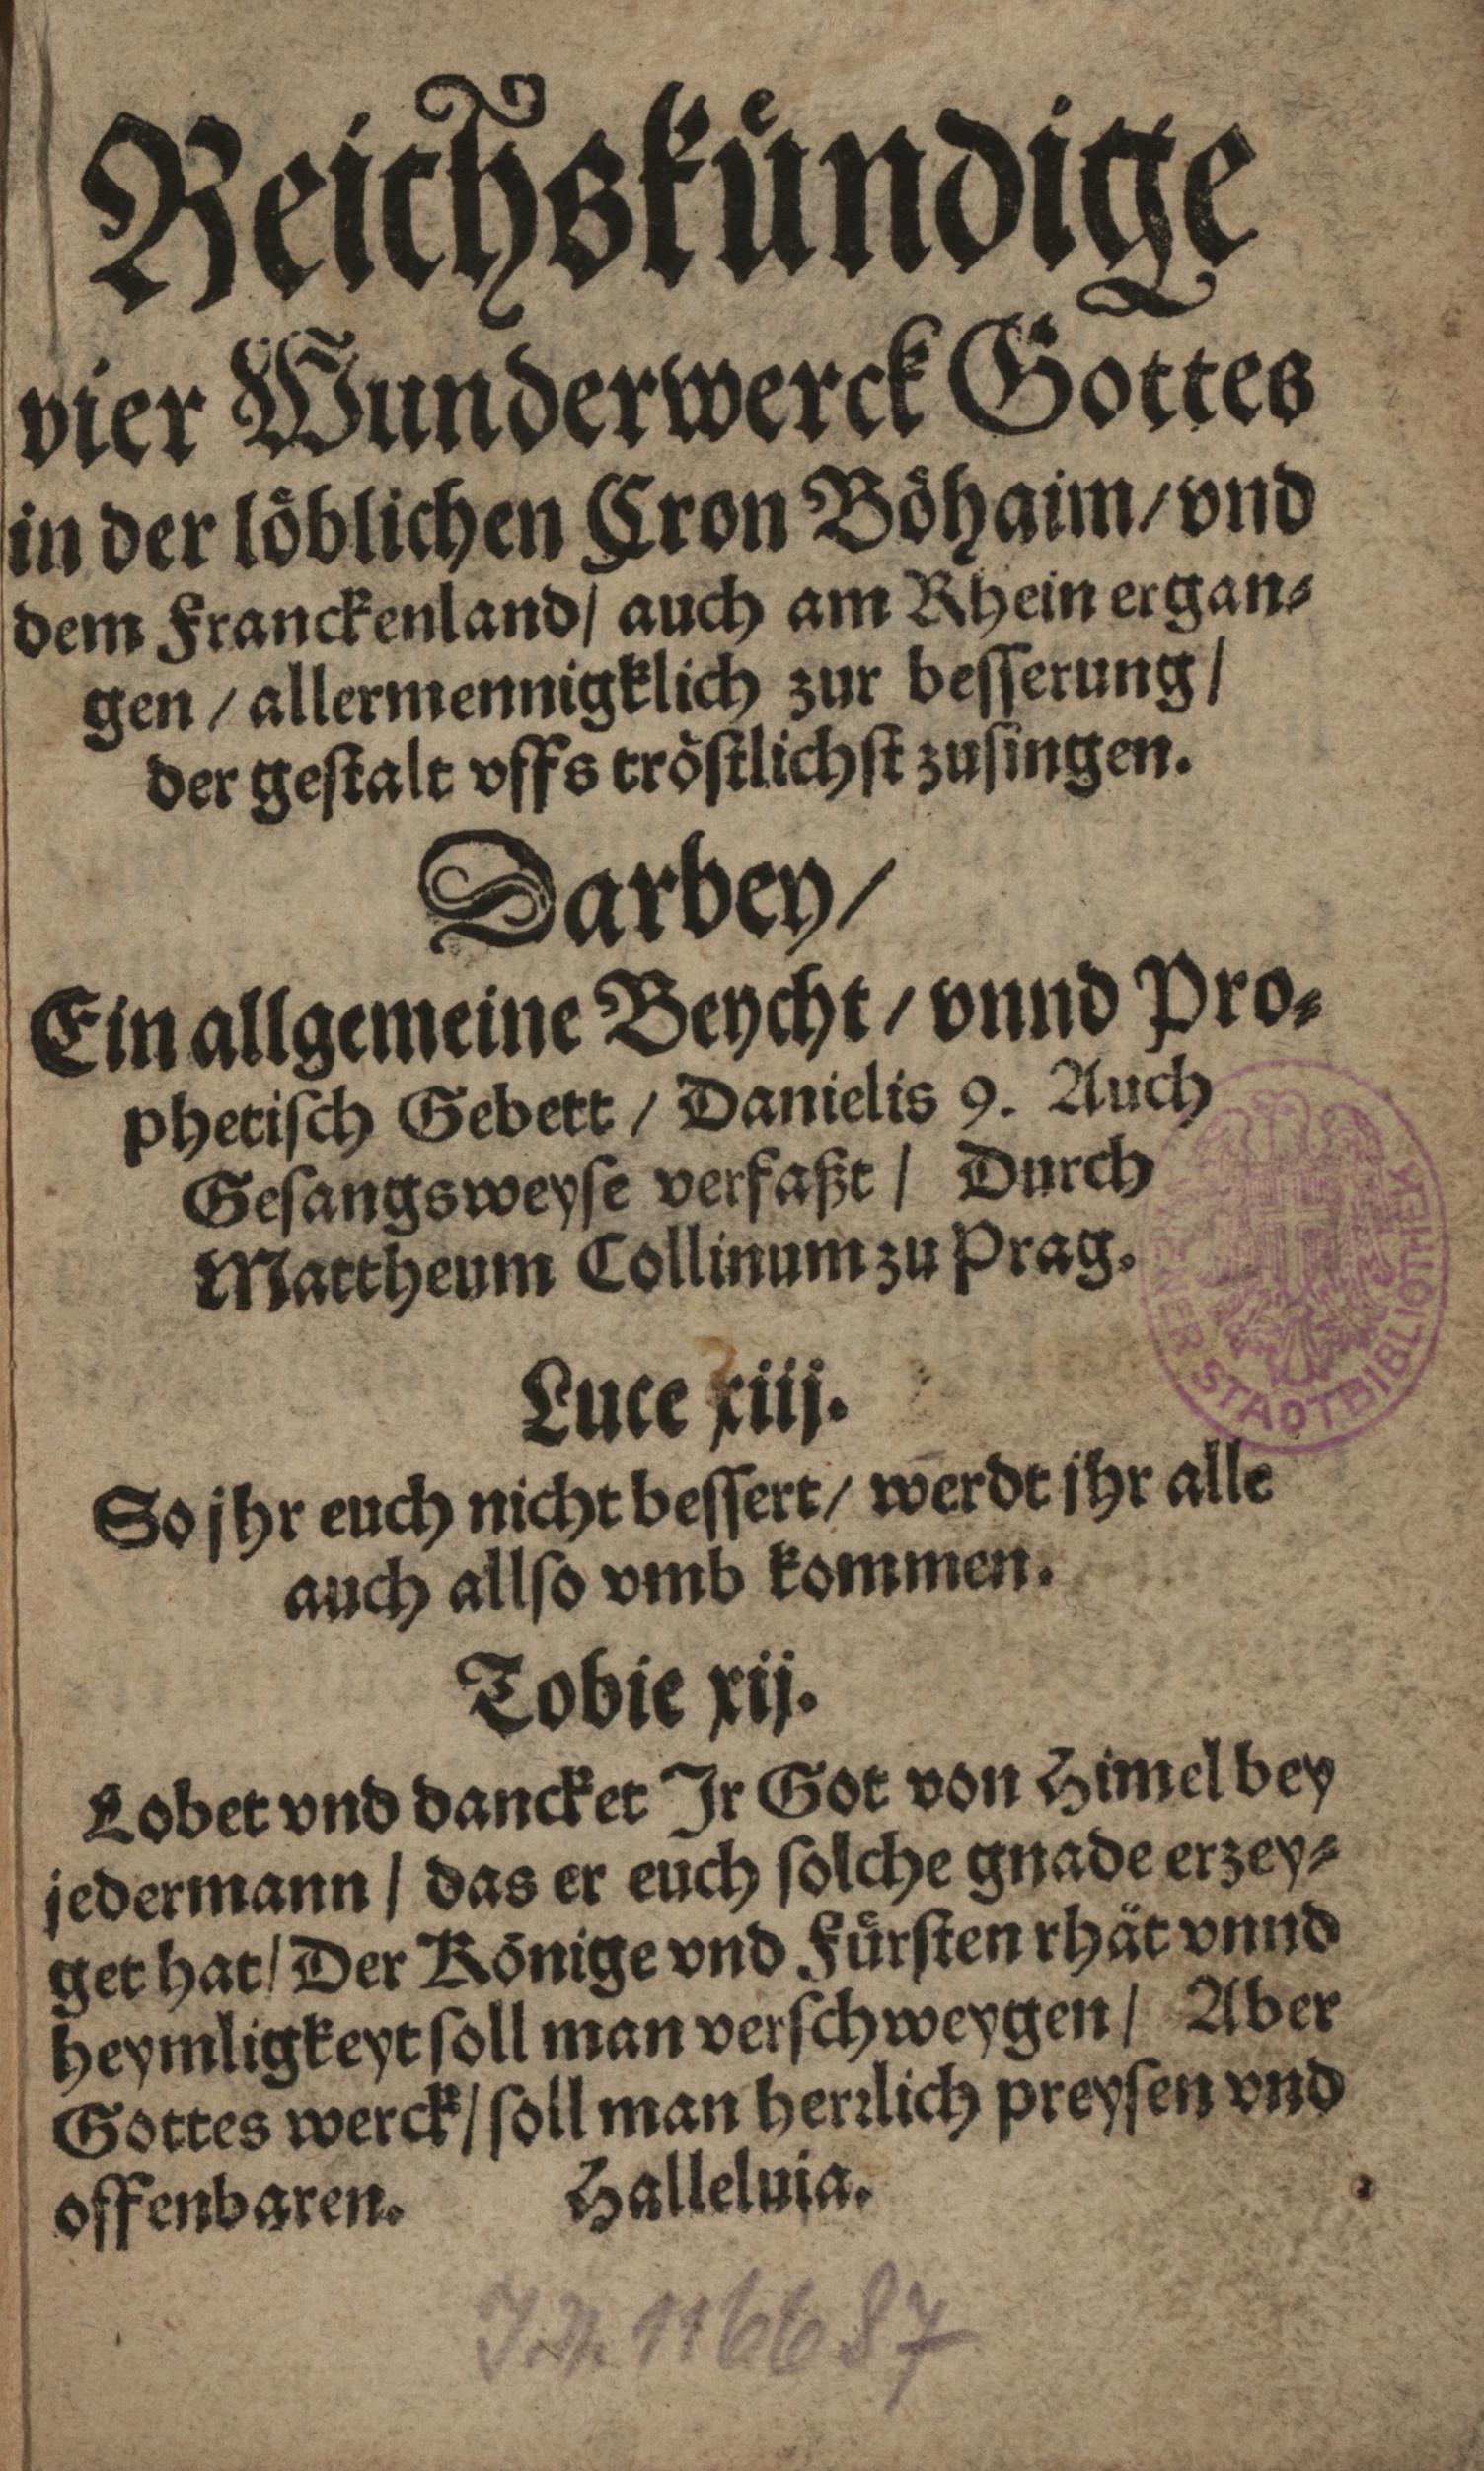 Reichskuͤndige
vier Wunderwerck Gottes
in der loͤblichen Cron Boͤhaim / vnd
dem Franckenland / auch am Rhein ergan⸗
gen / allermennigklich zur besserung /
der gestalt vffs troͤstlichst zusingen.
Darbey /
Ein allgemeine Beycht / vnnd Pro⸗
phetisch Gebett / Danielis 9. Auch
Gesangsweyse verfaßt / Durch
Mattheum Collinum zu Prag.
WIENER STADTBIBLIOTHEK
Luce xiij.
So jhr euch nicht bessert / werdt jhr alle
auch allso vmb kommen.
Tobie xij.
Lobet vnd dancket Jr Got von Himel bey
jedermann / das er euch solche gnade erzey⸗
get hat / Der Koͤnige vnd Fuͤrsten rhaͤt vnnd
heymligkeyt soll man verschweygen / Aber
Gottes werck / soll man herꝛlich preysen vnd
offenbaren. Halleluia.
J.N. 116687